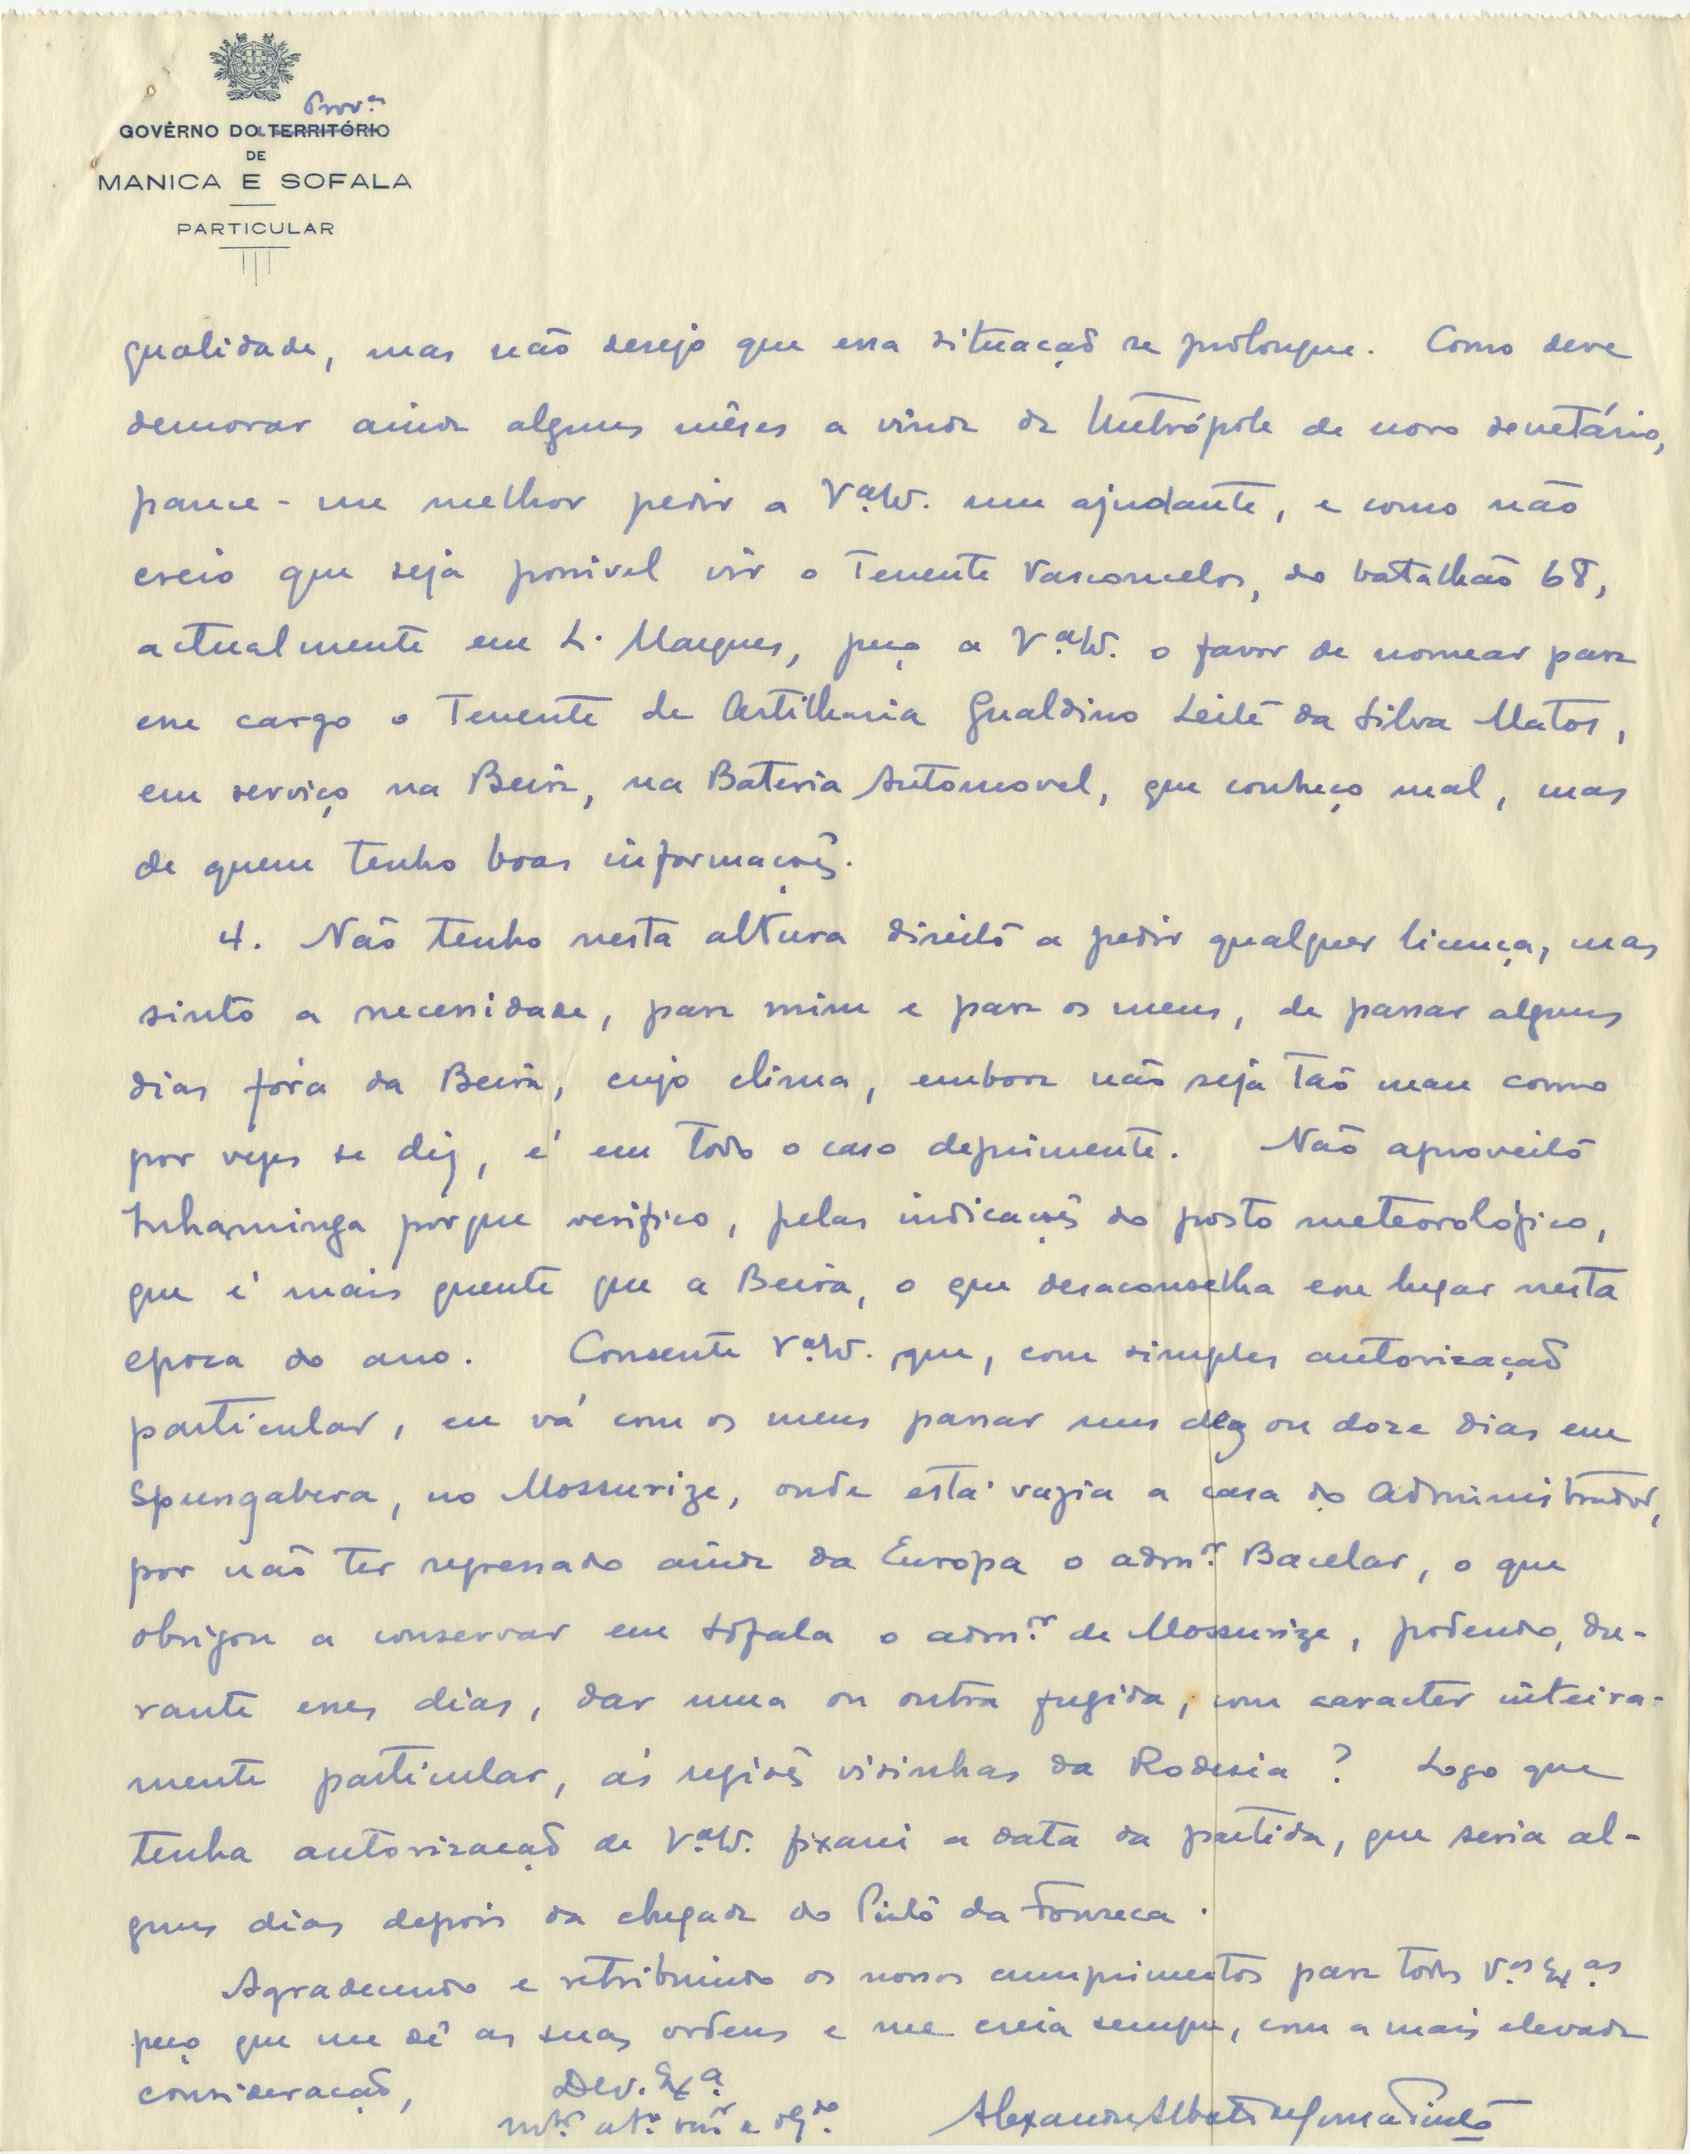 Prov.ª
GOVÊRNO DO TERRITÓRIO
DE
MANICA E SOFALA
PARTICULAR
qualidade, mas não desejo que essa situação se prolongue. Como deve
demorar ainda alguns mêses a vinda da Metrópole de novo secretário,
parece-me melhor pedir a V.ª um ajudante, e como não
creio que seja possivel vir o Tenente Vasconcelos, do batalhão 68,
actualmente em L. Marques, peço a V.ª o favor de nomear para
esse cargo o Tenente de Artilharia Gualdino Leite da Silva Matos,
em serviço na Beira, na Bateria Automovel, que conheço mal, mas
de quem tenho boas informações.
4. Não tenho nesta altura direito a pedir qualquer licença, mas
sinto a necessidade, para mim e para os meus, de passar alguns
dias fóra da Beira, cujo clima, embora não seja tão mau como
por vezes se diz, é em todo o caso deprimente. Não aproveito
Inhaminga porque verifico, pelas indicações do posto meteorológico,
que é mais quente que a Beira, o que desaconselha esse lugar nesta
epoca do ano. Consente V.ª que, com simples autorisação
particular, eu vá com os meus passar uns dez ou doze dias em
Spungabera, no Mossurize, onde está vazia a casa do Administrador,
por não ter regressado ainda da Europa o adm.or Bacelar, o que
obrigou a conservar em Sofala o adm.or de Mossurize, podendo, du-
rante esses dias, dar uma ou outra fugida, com caracter inteira-
mente particular, ás regiões visinhas da Rodesia? Logo que
tenha autorisação de V.ª fixarei a data da partida, que seria al-
guns dias depois da chegada do Pinto da Fonseca.
Agradecendo e retribuindo os nossos cumprimentos para todos V.as Ex.as
peço que me dê as suas ordens e me creia sempre, com a mais elevada
consideração,
De V. Ex.ª
m.to at.o e obg.do
Alexandre